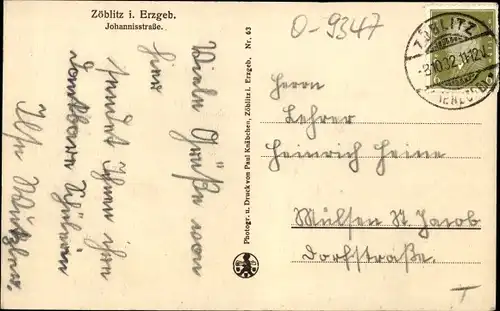 Zöblitz i. Erzgeb.
Johannisstraße.
O-9347
ZÖBLITZ
-2.10.32.11-12
(ERZGEB.)
Viele Grüße von
hier
sendet Ihnen ihre
dankbare Schülerin
Ilse
Photogr. u. Druck von Paul Knäbchen, Zöblitz i. Erzgeb. Nr. 63
Herrn
Lehrer
Heinrich Heine
Mülsen St. Jacob
Dorfstraße.
T